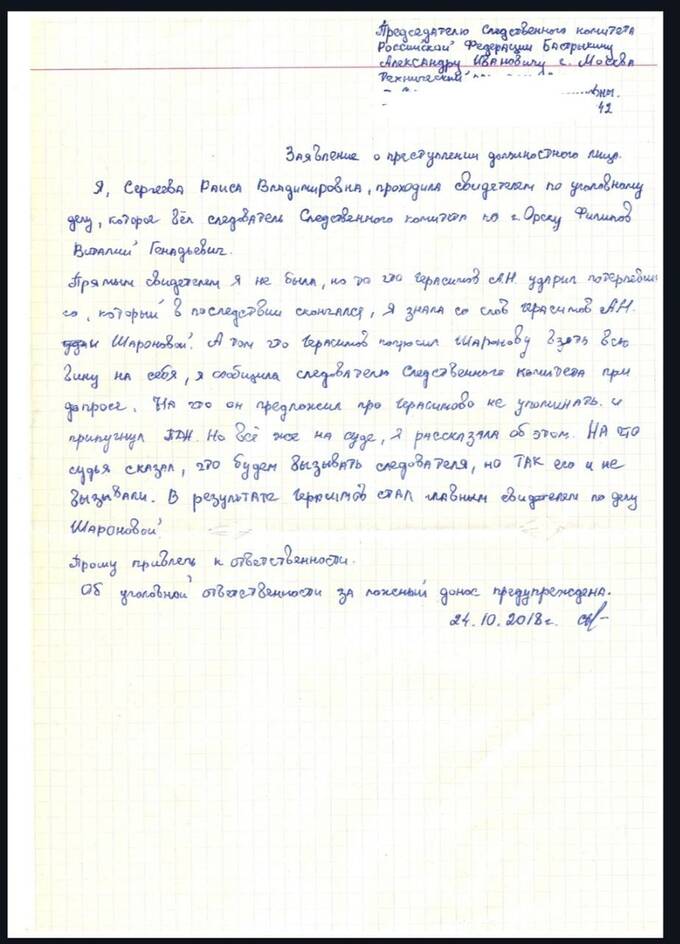 Председателю Следственного комитета
Российской Федерации Бастрыкину
Александру Ивановичу г. Москва
Технический
42
Заявление о преступлении должностного лица.
Я, Сергеева Раиса Владимировна, проходила свидетелем по уголовному
делу, которое вёл следователь Следственного комитета по г. Орску Филипов
Виталий Генадьевич.
Прямым свидетелем я не была, но то что Герасимов А.Н. ударил потерпевше
го, который в последствии скончался, я знала со слов Герасимов А.Н.
и Шароновой. А том что Герасимов попросил Шаронову взять всю
вину на себя, я сообщила следователю Следственного комитета при
допросе. На что он предложил про Герасимово не упоминать и
припугнул ПДН. Но всё же на суде, я рассказала об этом. На что
судья сказал, что будем вызывать следователя, но так его и не
вызывали. В результате Герасимов стал главным свидетелем по делу
Шароновой.
Прошу привлечь к ответственности.
Об уголовной ответственности за ложный донос предупреждена.
24.10.2018г.